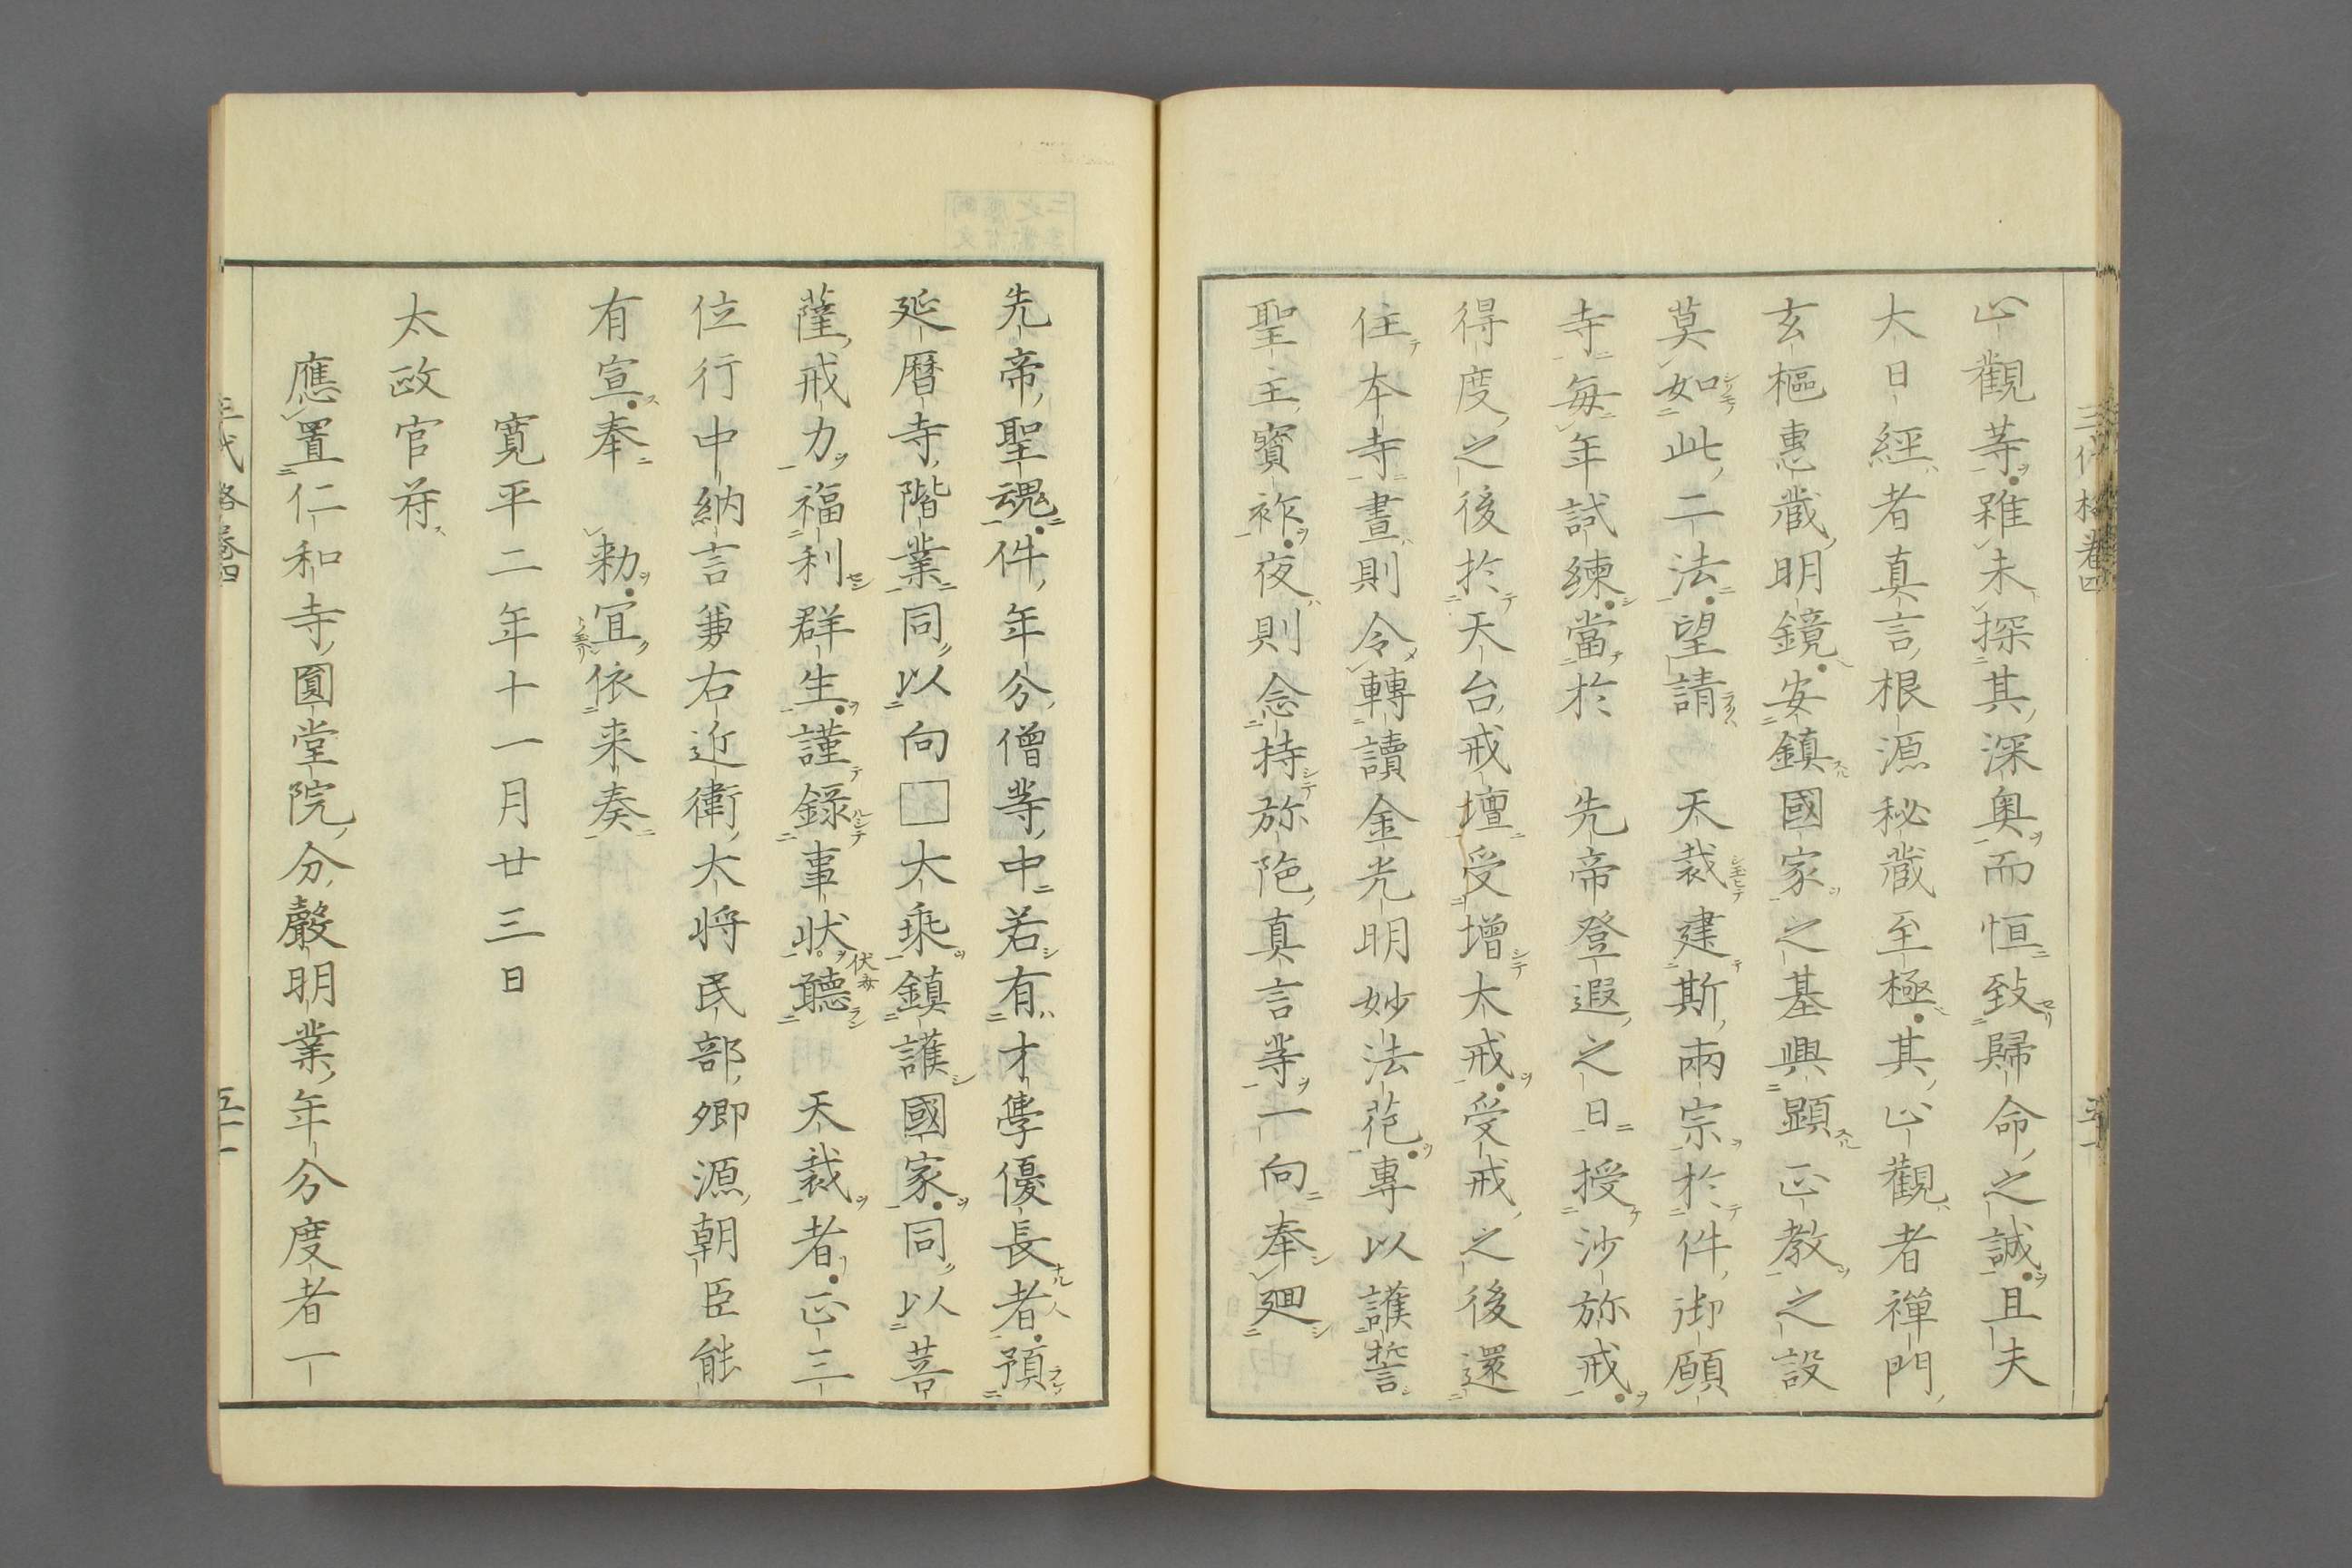 止觀等雖未探其深奥而恒致歸命之誠且夫
大日經者真言根源秘蔵至極其止觀者禅門
玄樞惠蔵明鏡安鎮國家之基興顕正教之設
莫如此二法望請　天裁建斯兩宗於件御願
寺毎年試練當於　先帝登遐之日授沙弥戒
得度之後於天台戒壇受増大戒受戒之後還
住本寺晝則令轉讀金光明妙法花專以護誓
聖主寳祚夜則念持弥陁真言等一向奉廻
先帝聖魂件年分僧等中若有才學優長者預
延暦寺階業同以向□大乘鎮護國家同以菩
薩戒力福利群生謹錄事状伏聽　天裁者正三
位行中納言兼右近衛大将民部卿源朝臣能
有宣奉　勅宜依来奏
寛平二年十一月廿三日
太政官符
應置仁和寺圓堂院分聲明業年分度者一